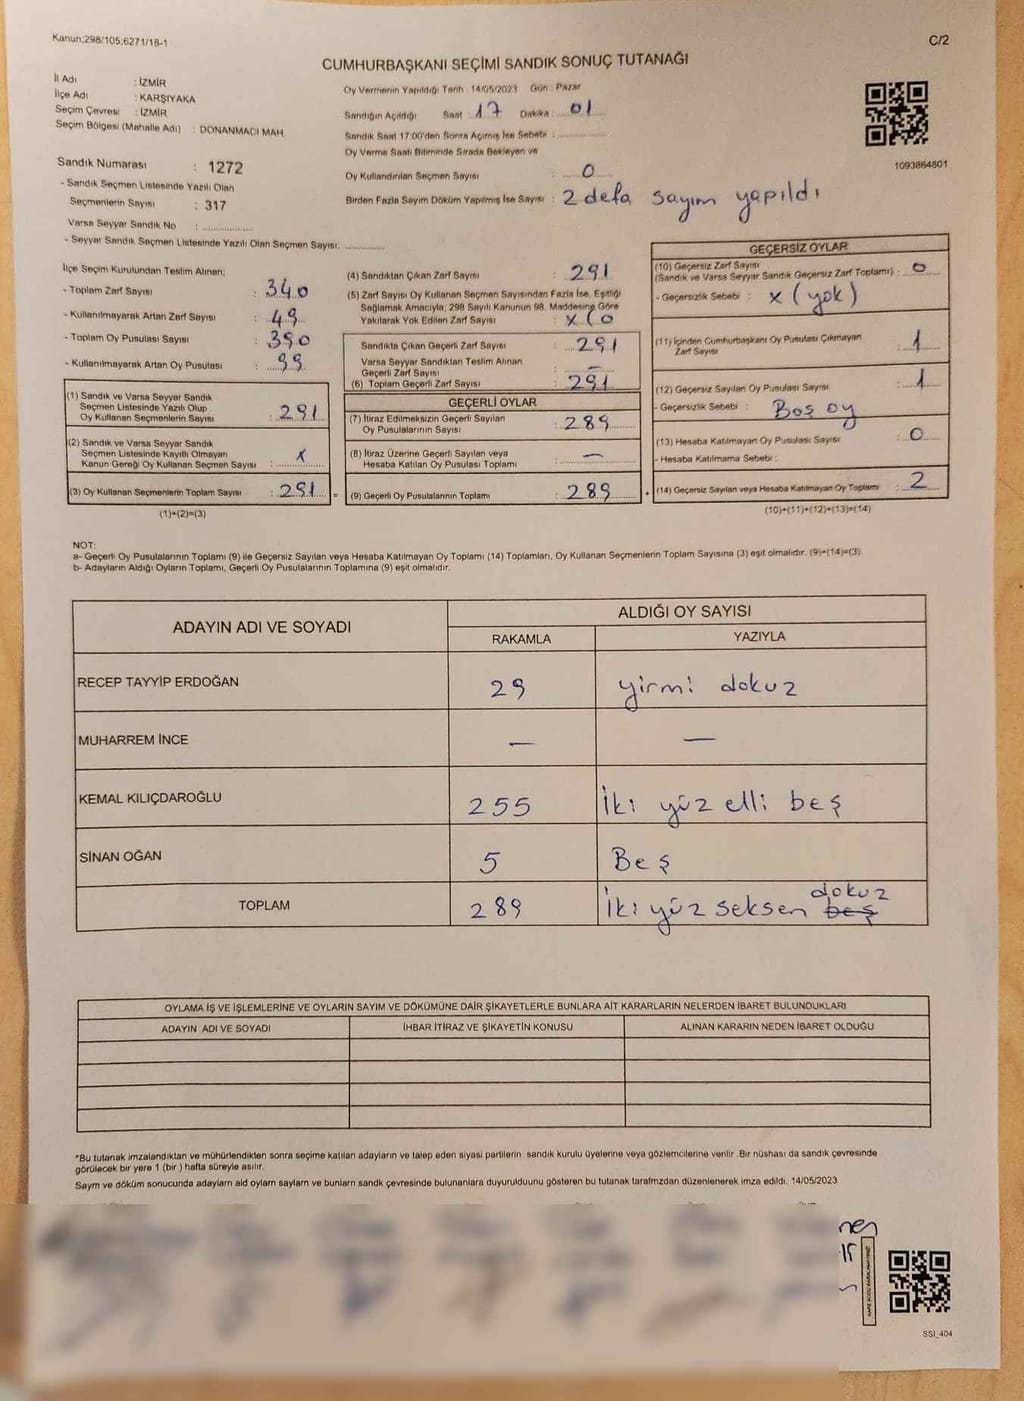 Kanun;298/105;6271/18-1
C/2
CUMHURBAŞKANI SEÇİMİ SANDIK SONUÇ TUTANAĞI
İl Adı : İZMİR
İlçe Adı : KARŞIYAKA
Seçim Çevresi : İZMİR
Seçim Bölgesi (Mahalle Adı) : DONANMACI MAH.
Oy Vermenin Yapıldığı Tarih : 14/05/2023 Gün : Pazar
Sandığın Açıldığı Saat : 17 Dakika : 01
Sandık Saat 17.00'den Sonra Açılmış İse Sebebi :
Oy Verme Saati Bitiminde Sırada Bekleyen ve
Oy Kullandırılan Seçmen Sayısı : 0
Birden Fazla Sayım Döküm Yapılmış İse Sayısı : 2 defa sayım yapıldı
1093864801
Sandık Numarası : 1272
- Sandık Seçmen Listesinde Yazılı Olan
Seçmenlerin Sayısı : 317
Varsa Seyyar Sandık No :
- Seyyar Sandık Seçmen Listesinde Yazılı Olan Seçmen Sayısı:
İlçe Seçim Kurulundan Teslim Alınan;
- Toplam Zarf Sayısı : 340
- Kullanılmayarak Artan Zarf Sayısı : 49
- Toplam Oy Pusulası Sayısı : 390
- Kullanılmayarak Artan Oy Pusulası : 99
(1) Sandık ve Varsa Seyyar Sandık
Seçmen Listesinde Yazılı Olup
Oy Kullanan Seçmenlerin Sayısı : 291
(2) Sandık ve Varsa Seyyar Sandık
Seçmen Listesinde Kayıtlı Olmayan
Kanun Gereği Oy Kullanan Seçmen Sayısı : X
(3) Oy Kullanan Seçmenlerin Toplam Sayısı : 291 =
(1)+(2)=(3)
(4) Sandıktan Çıkan Zarf Sayısı : 291
(5) Zarf Sayısı Oy Kullanan Seçmen Sayısından Fazla İse, Eşitliği
Sağlamak Amacıyla; 298 Sayılı Kanunun 98. Maddesine Göre
Yakılarak Yok Edilen Zarf Sayısı : X (0
Sandıkta Çıkan Geçerli Zarf Sayısı : 291
Varsa Seyyar Sandıktan Teslim Alınan
Geçerli Zarf Sayısı : —
(6) Toplam Geçerli Zarf Sayısı : 291
GEÇERLİ OYLAR
(7) İtiraz Edilmeksizin Geçerli Sayılan
Oy Pusulalarının Sayısı : 289
(8) İtiraz Üzerine Geçerli Sayılan veya
Hesaba Katılan Oy Pusulası Toplamı : —
(9) Geçerli Oy Pusulalarının Toplamı : 289 +
GEÇERSİZ OYLAR
(10) Geçersiz Zarf Sayısı
(Sandık ve Varsa Seyyar Sandık Geçersiz Zarf Toplamı) : 0
- Geçersizlik Sebebi : X (yok)
(11) İçinden Cumhurbaşkanı Oy Pusulası Çıkmayan
Zarf Sayısı : 1
(12) Geçersiz Sayılan Oy Pusulası Sayısı : 1
- Geçersizlik Sebebi : Boş oy
(13) Hesaba Katılmayan Oy Pusulası Sayısı : 0
- Hesaba Katılmama Sebebi :
(14) Geçersiz Sayılan veya Hesaba Katılmayan Oy Toplamı : 2
(10)+(11)+(12)+(13)=(14)
NOT:
a- Geçerli Oy Pusulalarının Toplamı (9) ile Geçersiz Sayılan veya Hesaba Katılmayan Oy Toplamı (14) Toplamları, Oy Kullanan Seçmenlerin Toplam Sayısına (3) eşit olmalıdır. (9)+(14)=(3)
b- Adayların Aldığı Oyların Toplamı, Geçerli Oy Pusulalarının Toplamına (9) eşit olmalıdır.
ADAYIN ADI VE SOYADI
ALDIĞI OY SAYISI
RAKAMLA YAZIYLA
RECEP TAYYİP ERDOĞAN 29 yirmi dokuz
MUHARREM İNCE — —
KEMAL KILIÇDAROĞLU 255 İki yüz elli beş
SİNAN OĞAN 5 Beş
TOPLAM 289 İki yüz seksen beş dokuz
OYLAMA İŞ VE İŞLEMLERİNE VE OYLARIN SAYIM VE DÖKÜMÜNE DAİR ŞİKAYETLERLE BUNLARA AİT KARARLARIN NELERDEN İBARET BULUNDUKLARI
ADAYIN ADI VE SOYADI İHBAR İTİRAZ VE ŞİKAYETİN KONUSU ALINAN KARARIN NEDEN İBARET OLDUĞU
*Bu tutanak imzalandıktan ve mühürlendikten sonra seçime katılan adayların ve talep eden siyasi partilerin sandık kurulu üyelerine veya gözlemcilerine verilir .Bir nüshası da sandık çevresinde
görülecek bir yere 1 (bir ) hafta süreyle asılır.
Sayım ve döküm sonucunda adayların ald oyların sayların ve bunların sandk çevresinde bulunanlara duyurulduunu gösteren bu tutanak tarafmzdan düzenlenerek imza edildi. 14/05/2023
SSI_404